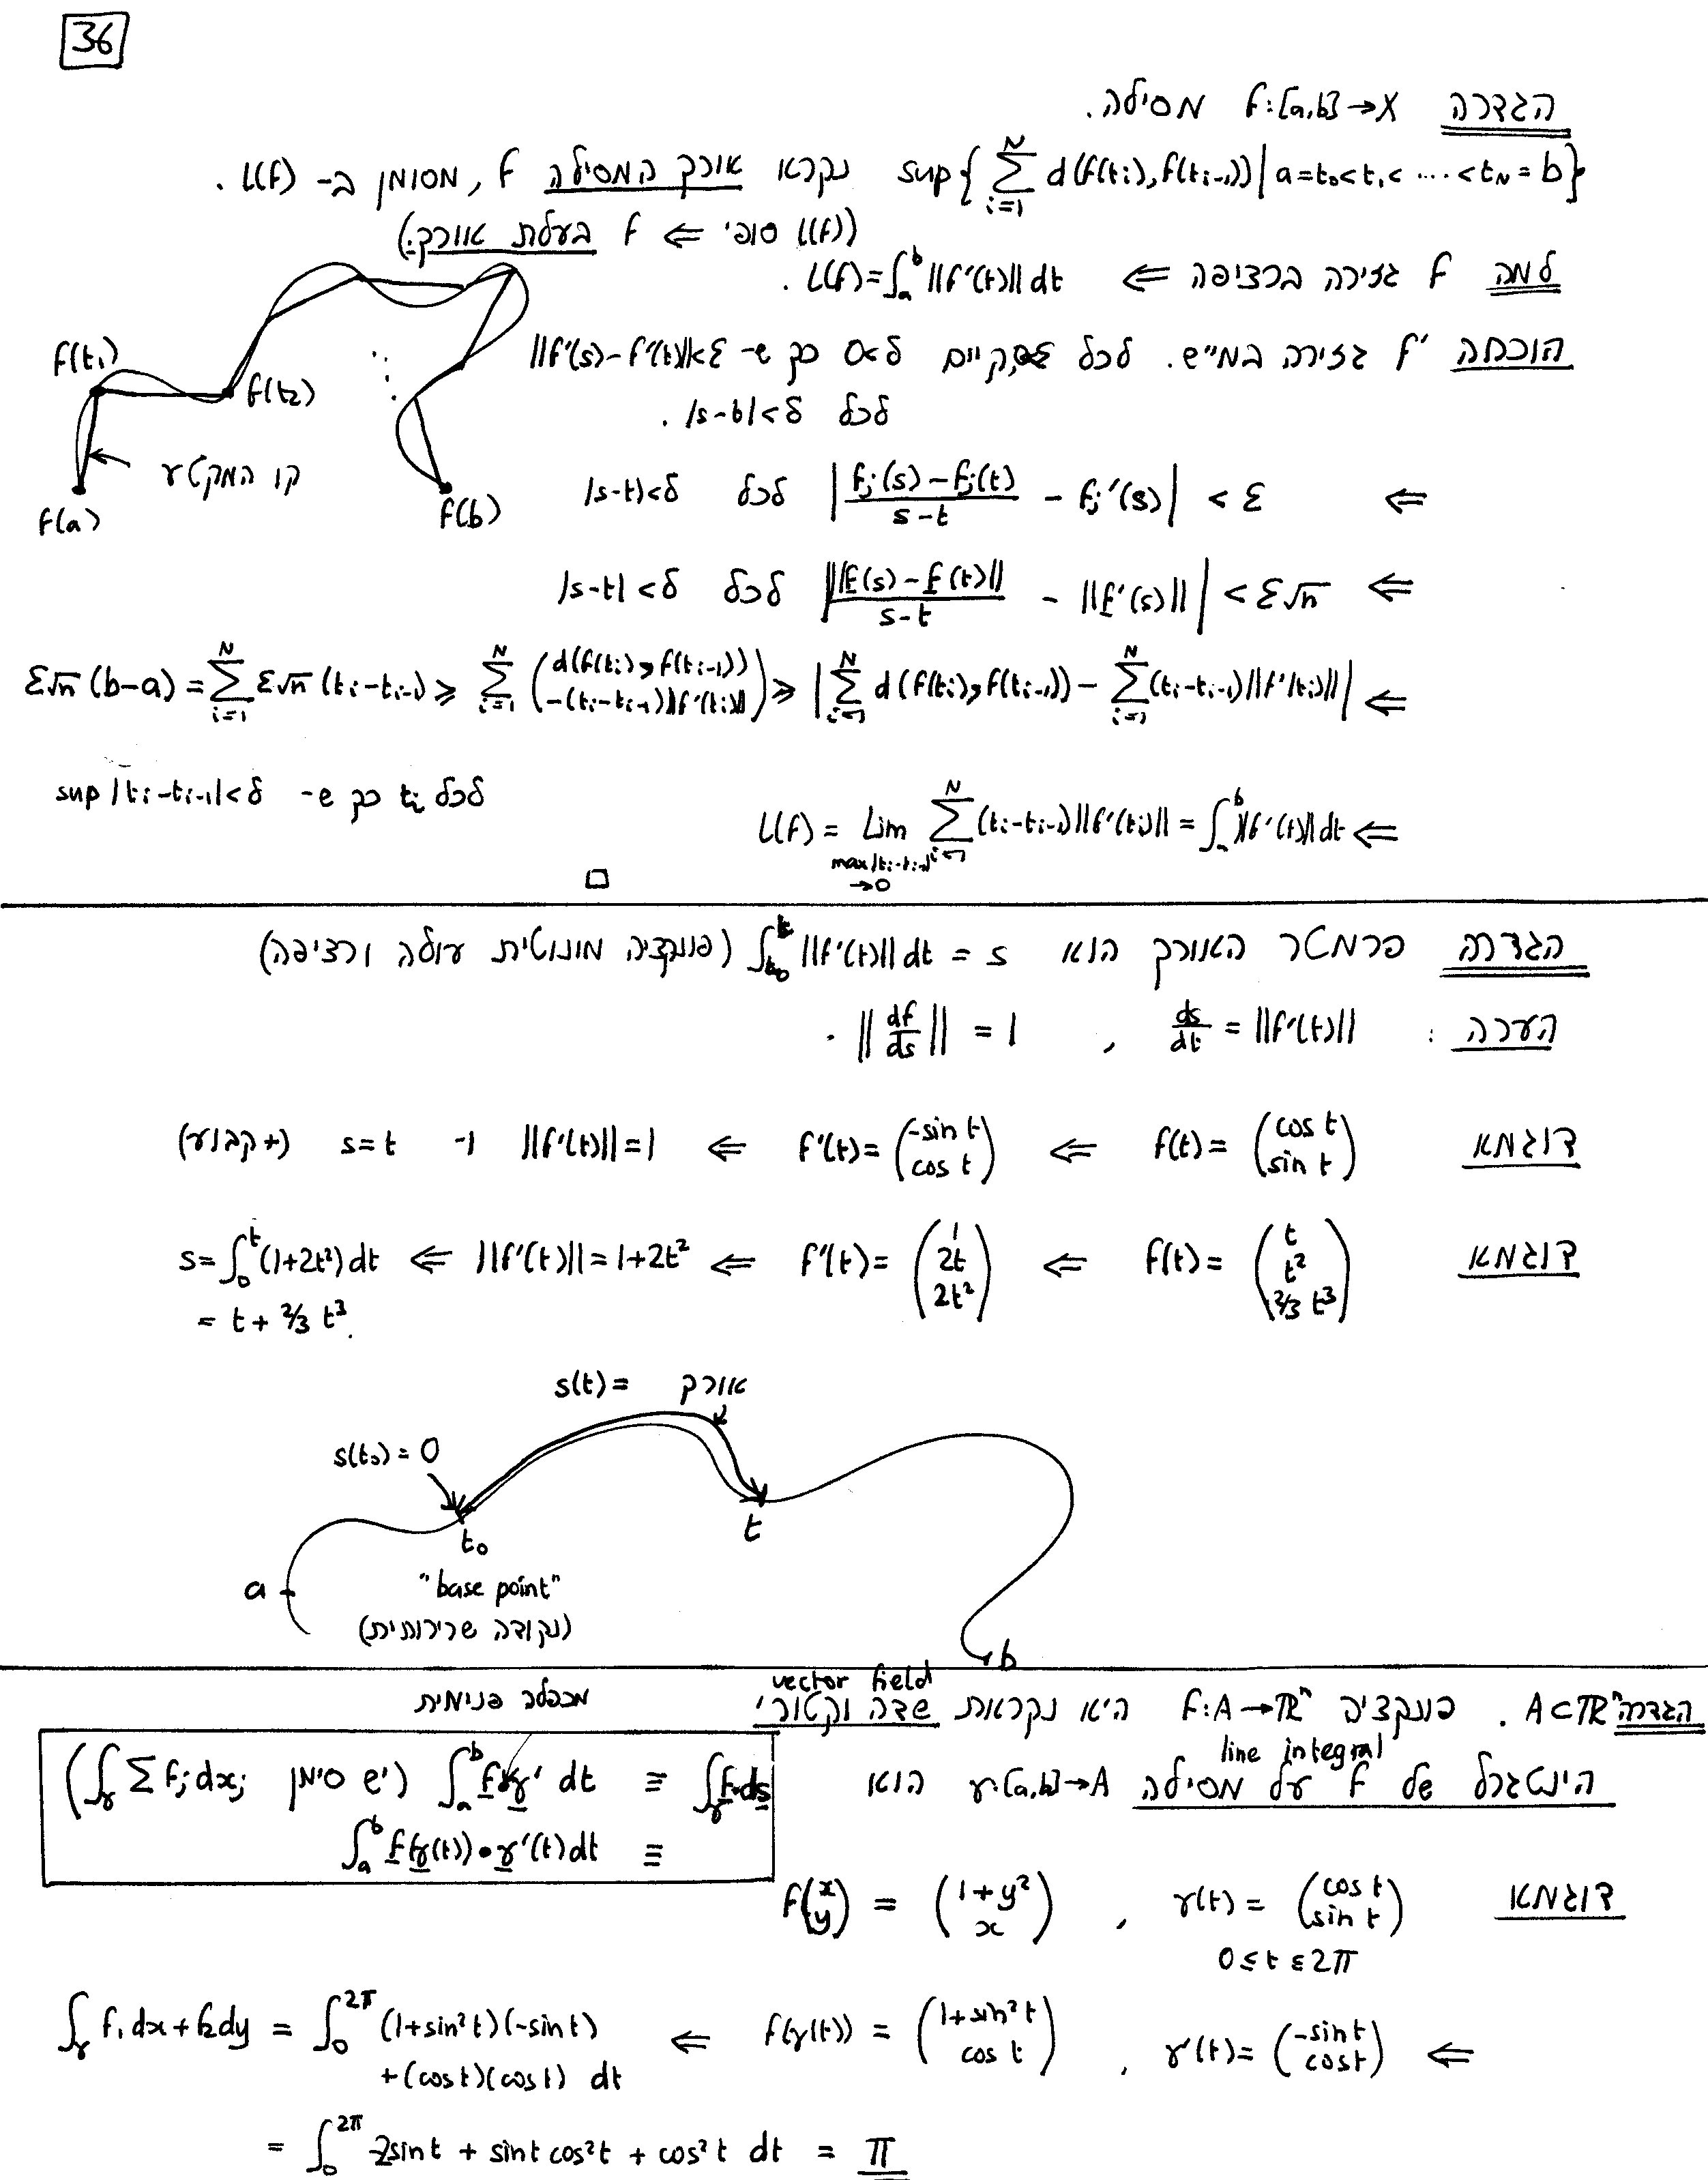 36
הגדרה f:[a,b]→X מסילה.
sup{ ∑_{i=1}^{N} d(f(t_i),f(t_{i-1})) | a=t_0<t_1<⋯<t_N=b } נקרא אורך המסילה f, מסומן ב- L(f).
(L(f) סופי ⇐ f בעלת אורך.)
למה f גזירה ברציפה ⇐ L(f)=∫_a^b ||f'(t)|| dt .
הוכחה f' גזירה במ"ש. לכל ε, קיים δ>0 כך ש- ||f'(s)-f'(t)||<ε
לכל |s-b|<δ .
f(t_1)
f(t_2)
קו המקטע
f(a)
f(b)
⇐ |(f_j(s)-f_j(t))/(s-t) - f_j'(s)| < ε לכל |s-t|<δ
⇐ | ||f(s)-f(t)||/(s-t) - ||f'(s)|| | < ε√n לכל |s-t|<δ
⇐ |∑_{i=1}^{N} d(f(t_i),f(t_{i-1})) - ∑_{i=1}^{N} (t_i-t_{i-1})||f'(t_i)||| ⩽ ∑_{i=1}^{N} (d(f(t_i),f(t_{i-1})) -(t_i-t_{i-1})||f'(t_i)||) ⩽ ∑_{i=1}^{N} ε√n (t_i-t_{i-1}) = ε√n (b-a)
לכל t_i כך ש- sup |t_i-t_{i-1}|<δ
⇐ L(f) = Lim_{max|t_i-t_{i-1}|→0} ∑_{i=1}^{N} (t_i-t_{i-1})||f'(t_i)|| = ∫_a^b ||f'(t)|| dt
□
הגדרה פרמטר האורך הוא s = ∫_{t_0}^{t} ||f'(t)|| dt (פונקציה מונוטית עולה ורציפה)
הערה : ds/dt = ||f'(t)|| , ||df/ds|| = 1 .
דוגמא f(t) = (cos t, sin t) ⇐ f'(t) = (-sin t, cos t) ⇐ ||f'(t)||=1 ו- s=t (+קבוע)
דוגמא f(t) = (t, t², 2/3 t³) ⇐ f'(t) = (1, 2t, 2t²) ⇐ ||f'(t)|| = 1+2t² ⇐ s=∫_0^t (1+2t²) dt
= t + 2/3 t³.
s(t) = אורך
s(t_0) = 0
t_0
t
a
"base point"
(נקודה שרירותית)
b
הגדרה A⊂ℝⁿ. פונקציה f:A→ℝⁿ היא נקראת שדה וקטורי
vector field
מכפלה פנימית
line integral
הינטגרל של f על מסילה γ:[a,b]→A הוא
∫_γ f·ds ≡ ∫_a^b f·γ' dt (יש סימן ∫_γ ∑ f_j dx_j)
≡ ∫_a^b f(γ(t))•γ'(t) dt
דוגמא γ(t) = (cos t, sin t) , f(x, y) = (1+y², x)
0≤t≤2π
⇐ γ'(t) = (-sin t, cos t) , f(γ(t)) = (1+sin²t, cos t) ⇐ ∫_γ f_1 dx + f_2 dy = ∫_0^{2π} (1+sin²t)(-sin t)
+(cos t)(cos t) dt
= ∫_0^{2π} -2sin t + sin t cos²t + cos²t dt = π